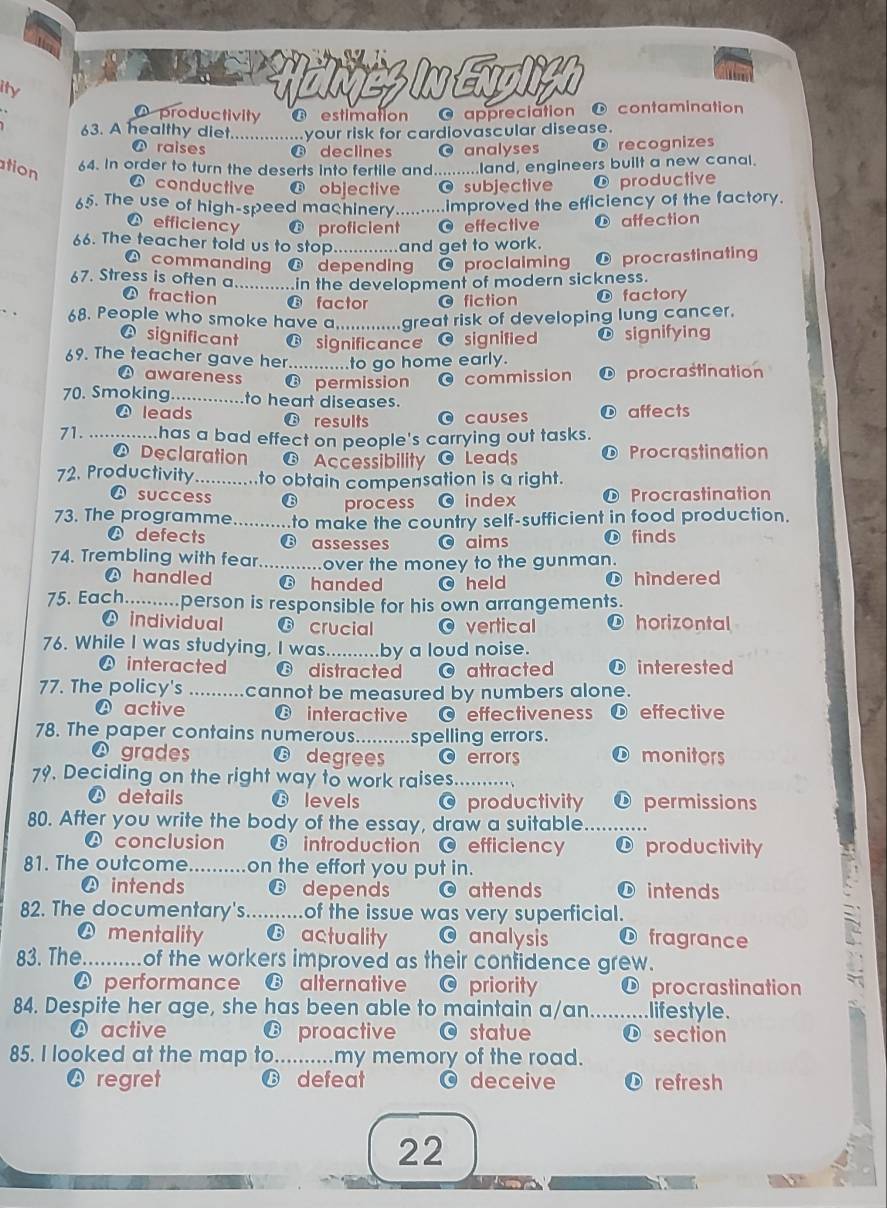 Holmes In English
ity
A productivity B estimation C appreciation D contamination
63. A healthy diet..............your risk for cardiovascular disease.
A raises B declines C analyses D recognizes
ation
64. In order to turn the deserts into fertile and..........land, engineers built a new canal.
A conductive B objective C subjective D productive
65. The use of high-speed machinery..........improved the efficiency of the factory.
A efficiency B proficient C effective D affection
66. The teacher told us to stop.............and get to work.
A commanding B depending C proclaiming D procrastinating
67. Stress is often a............in the development of modern sickness.
A fraction B factor C fiction D factory
68. People who smoke have a.............great risk of developing lung cancer.
A significant B significance C signified D signifying
69. The teacher gave her............to go home early.
A awareness B permission C commission D procrastination
70. Smoking..............to heart diseases.
A leads B results C causes D affects
71. .............has a bad effect on people's carrying out tasks.
A Declaration B Accessibility C Leads D Procrastination
72. Productivity............to obtain compensation is a right.
A success B process C index D Procrastination
73. The programme...........to make the country self-sufficient in food production.
A defects B assesses C aims D finds
74. Trembling with fear............over the money to the gunman.
A handled B handed C held D hindered
75. Each..........person is responsible for his own arrangements.
A individual B crucial C vertical D horizontal
76. While I was studying, I was..........by a loud noise.
A interacted B distracted C attracted D interested
77. The policy's ..........cannot be measured by numbers alone.
A active B interactive C effectiveness D effective
78. The paper contains numerous..........spelling errors.
A grades B degrees C errors D monitors
79. Deciding on the right way to work raises...........
A details B levels C productivity D permissions
80. After you write the body of the essay, draw a suitable...........
A conclusion B introduction C efficiency D productivity
81. The outcome..........on the effort you put in.
A intends B depends C attends D intends
82. The documentary's..........of the issue was very superficial.
A mentality B actuality C analysis D fragrance
83. The..........of the workers improved as their confidence grew.
A performance B alternative C priority D procrastination
84. Despite her age, she has been able to maintain a/an..........lifestyle.
A active B proactive C statue D section
85. I looked at the map to..........my memory of the road.
A regret B defeat C deceive D refresh
22